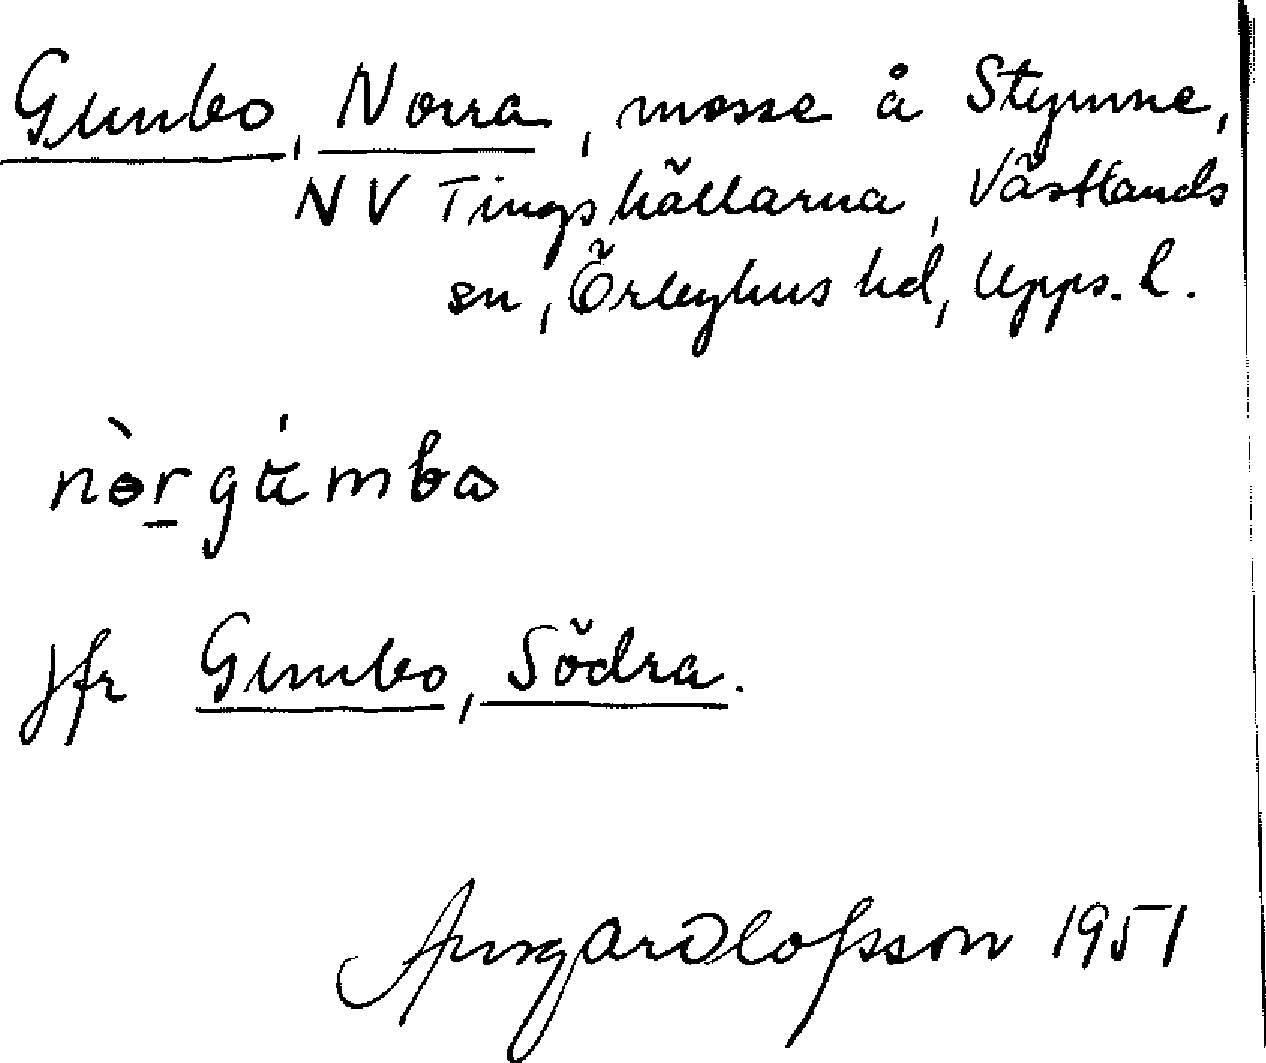 Gumbo, Norra, mosse å Stymne,
NV Tingshällarna, Västlands
sn, Örbyhus hd, Upps. l.
nòrgúmbω
Jfr Gumbo, Södra.
Ansgar Olofsson 1951